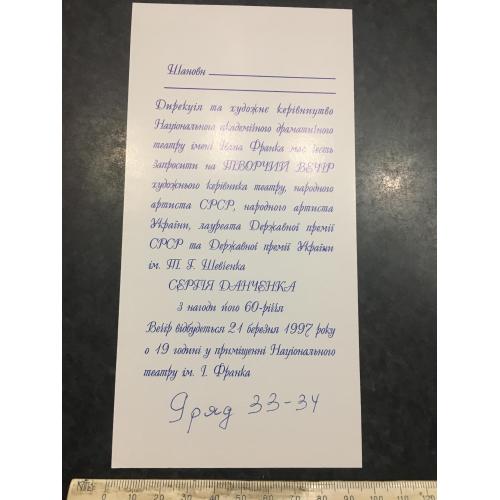 Шановн
Дирекція та художнє керівництво
Національного академічного драматичного
театру імені Івана Франка має честь
запросити на ТВОРЧИЙ ВЕЧІР
художнього керівника театру, народного
артиста СРСР, народного артиста
України, лауреата Державної премії
СРСР та Державної премії України
ім. Т. Г. Шевченка
СЕРГІЯ ДАНЧЕНКА
з нагоди його 60-річчя
Вечір відбудеться 21 березня 1997 року
о 19 годині у приміщенні Національного
театру ім. І. Франка
9 ряд 33-34
0 10 20 30 40 50 60 70 80 90 100 110 120